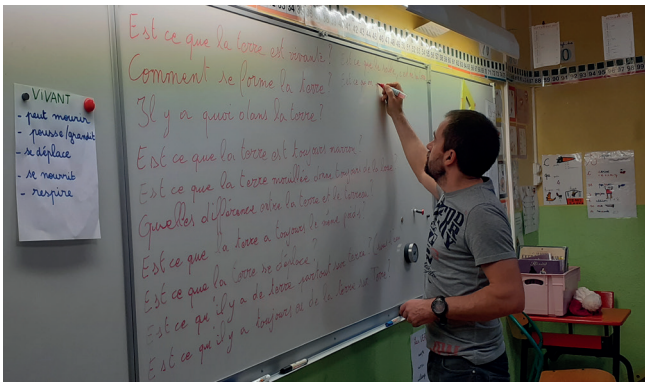 VIVANT
- peut mourir
- pousse/grandit
- se déplace
- se nourrit
- respire
Est ce que la terre est vivante ?
Comment se forme la terre
Il y a quoi dans la terre ?
Est ce que la terre est toujours marron ?
Est ce que la terre mouillée vient toujours de la
Quelles différence entre la terre et le terreau ?
Est ce que la terre a toujours le même poids ?
Est ce que la terre se déplace ?
Est ce qu'il y a de terre partout sur Terre ?
Est ce qu'il y a toujours eu de la terre sur Terre ?